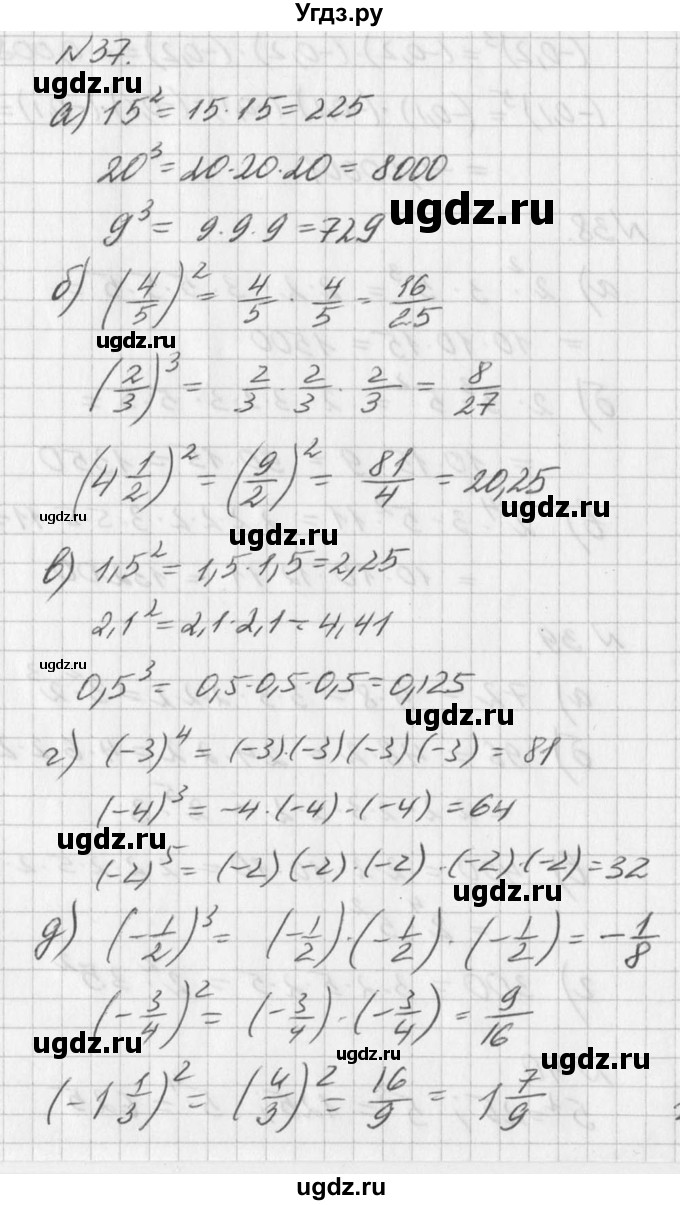 Угдз.ру
№37.
а) 15² = 15·15 = 225
ugdz.ru
20³ = 20·20·20 = 8000
ugdz.ru
9³ = 9·9·9 = 729
б) (4/5)² = 4/5 · 4/5 = 16/25
ugdz.ru
(2/3)³ = 2/3 · 2/3 · 2/3 = 8/27
(4 1/2)² = (9/2)² = 81/4 = 20,25
ugdz.ru ugdz.ru ugdz.ru
в) 1,5² = 1,5·1,5 = 2,25
2,1² = 2,1·2,1 = 4,41
ugdz.ru
0,5³ = 0,5·0,5·0,5 = 0,125
ugdz.ru
г) (-3)⁴ = (-3)·(-3)(-3)(-3) = 81
(-4)³ = -4·(-4)·(-4) = 64
ugdz.ru
(-2)⁵ = (-2)(-2)·(-2)·(-2)·(-2) = 32
ugdz.ru
д) (-1/2)³ = (-1/2)·(-1/2)·(-1/2) = -1/8
(-3/4)² = (-3/4)·(-3/4) = 9/16
ugdz.ru ugdz.ru ugdz.ru
(-1 1/3)² = (4/3)² = 16/9 = 1 7/9
ugdz.ru